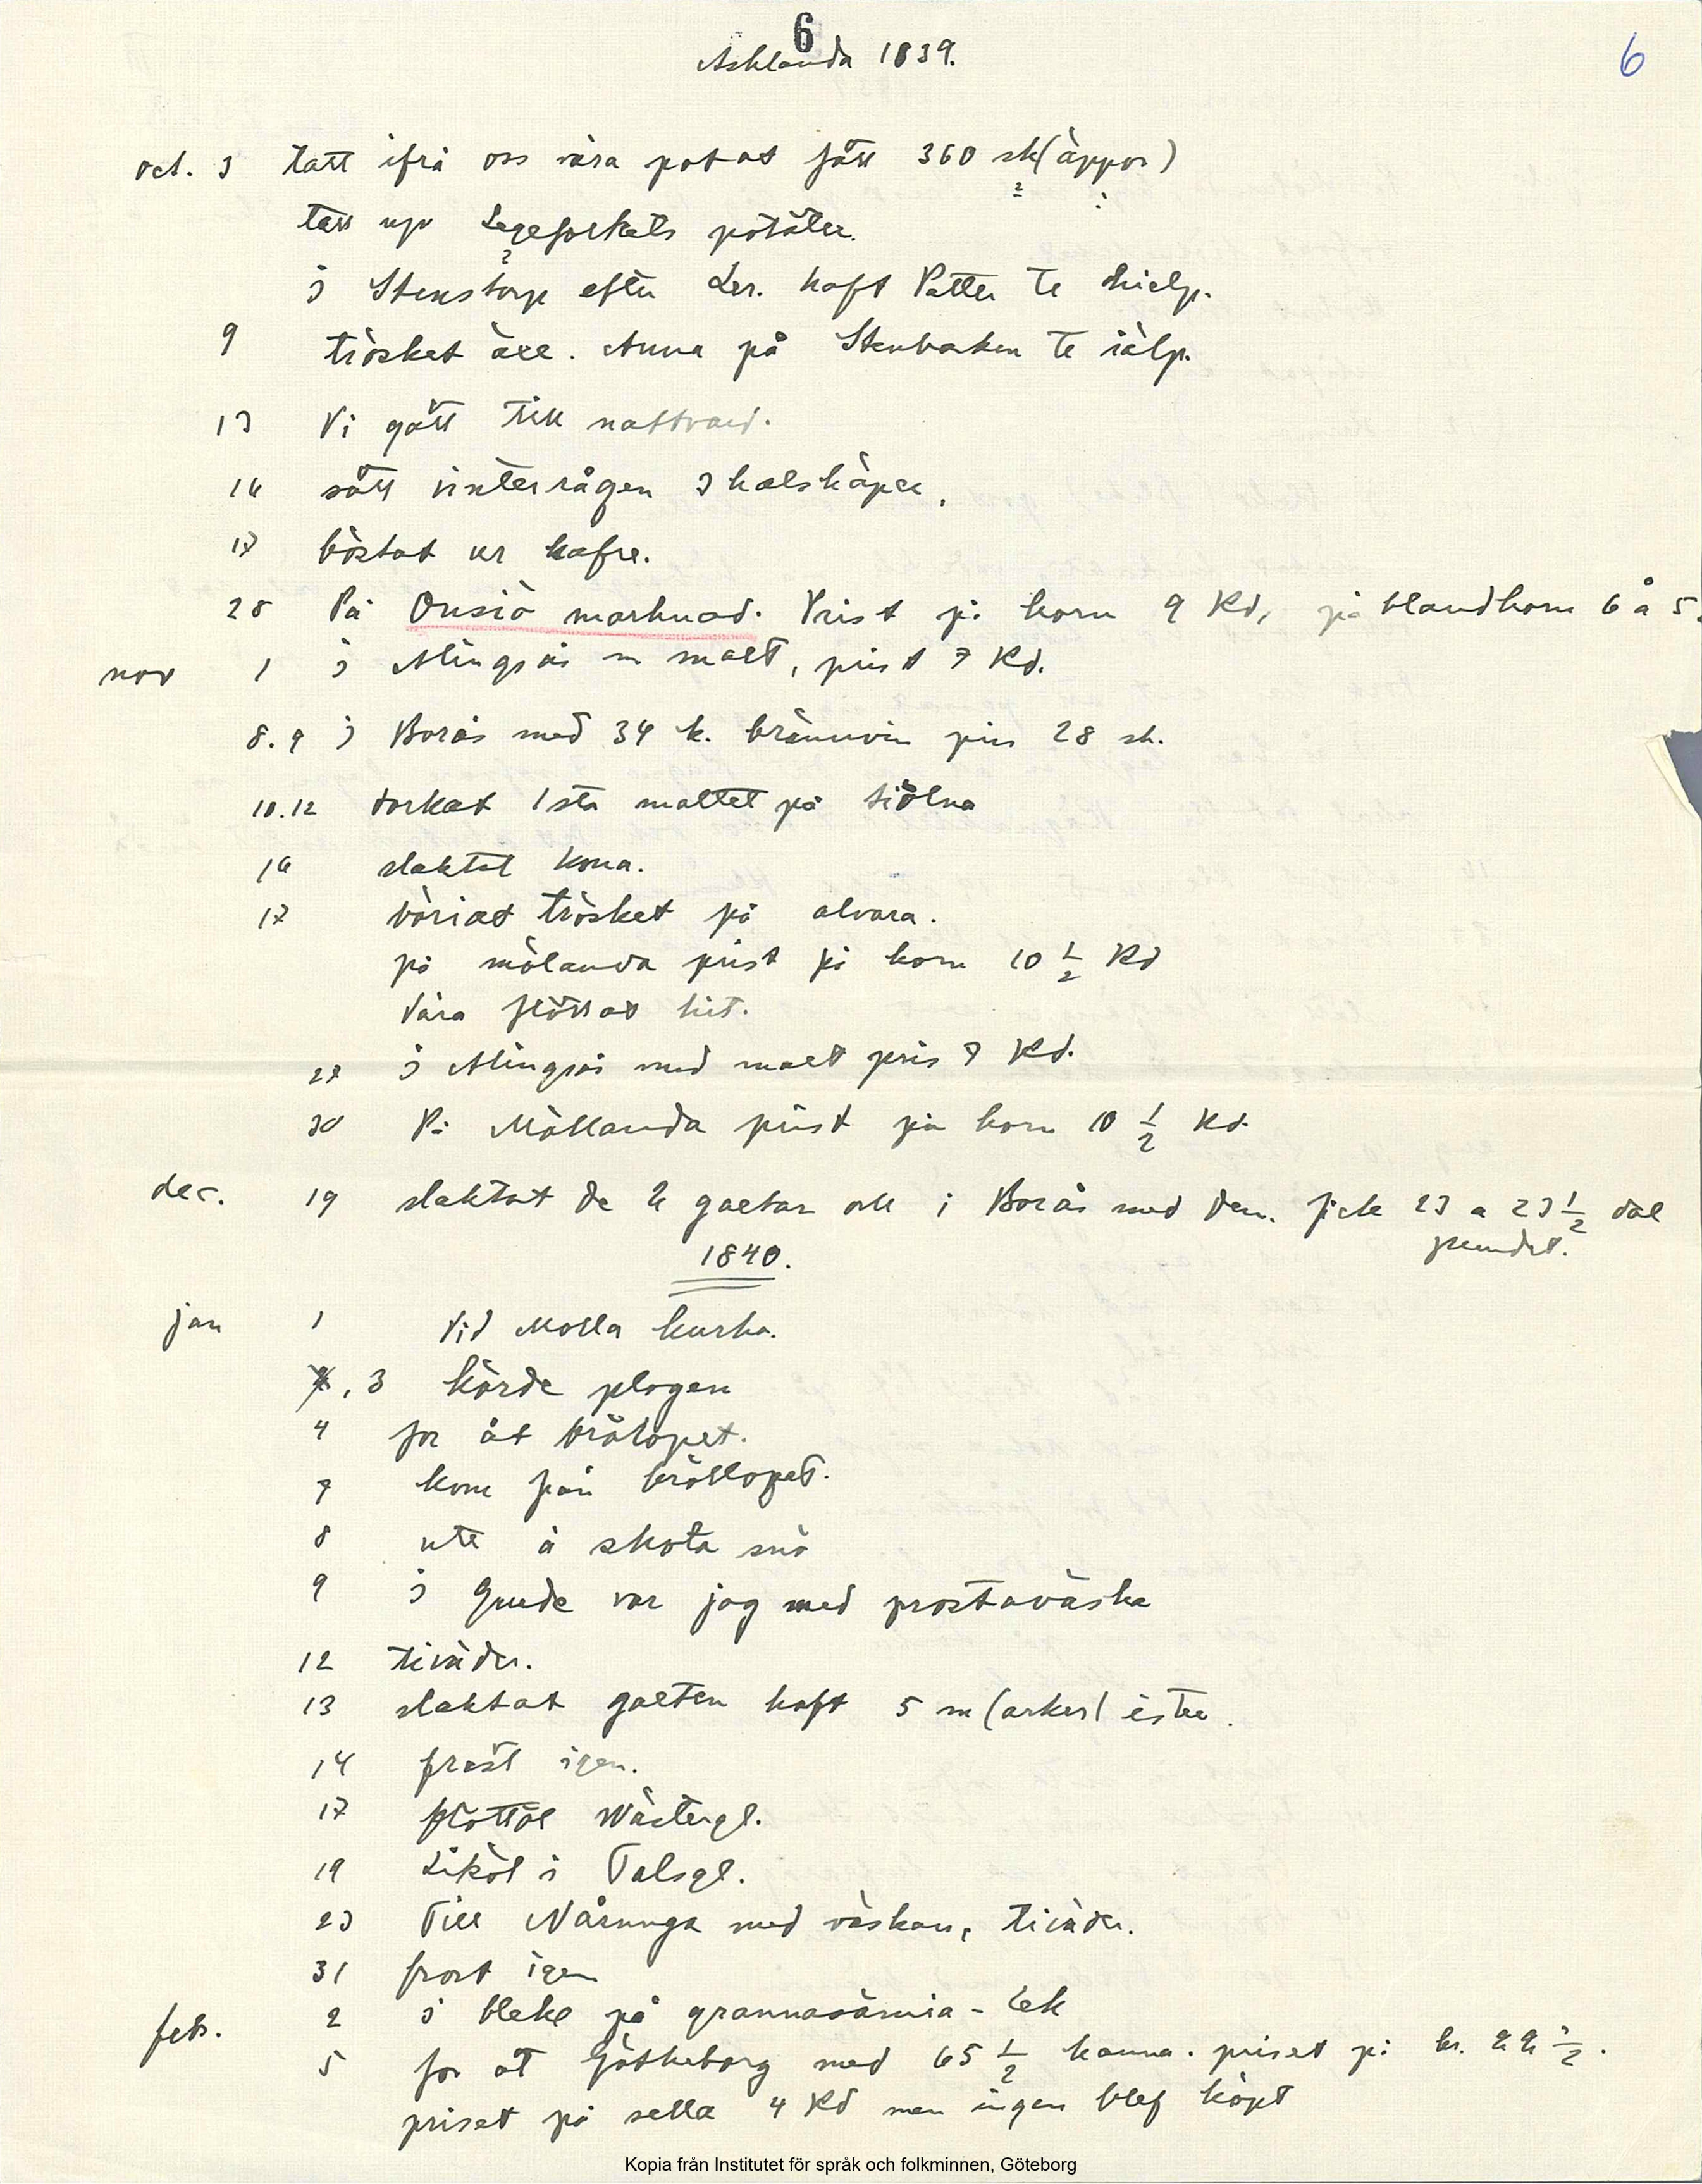 6
Asklanda 1839.
6
oct. 3 tatt ifrå oss våra potat fått 360 sk(äppor)
tatt up potäter.
i Stenstorp efter Ler. haft Petter te hielp.
9 trösket äre. Anna på Stenbacken te iälp.
13 Vi gått till nattvard.
16 sått vinterrågen 3 halskäper.
17 böstat ur hafre.
28 På Onsiö marknad. Prist på korn 9 Rd, på blandkorn 6 å 5.
nov 1 i Alingsås m malt, prist 7 Rd.
8.9 i Borås med 34 k. brännvin pris 28 sk.
10.12 torkat 1sta maltet på tiölna
16 slaktat kona.
17 böriat trösket på alvara.
på mölanda prist på korn 10 1/2 Rd
Våra flöttat hit.
27 i Alingsås med malt pris 7 Rd.
30 På Möllanda prist på korn 10 1/2 Rd.
dec. 19 slaktat de 2 galtar och i Borås med dem. fick 23 a 23 1/2 dal
pundet.
1840.
jan 1 Vid Molla kurka.
, 3 körde plogen
4 for åt brölopet.
7 kom från bröllopet.
8 ute å skota snö
9 i Grude var jag med prostaväska
12 tiväder.
13 slaktat galten haft 5 m(arker) ister.
14 frost igen.
17 flöttöl Wästergl.
19 Liköl i Tolsgl.
23 Till Nårunga med väskan, tiväder.
31 frost igen
feb. 2 i bleke på grannasämia-lek
5 for åt Götheborg med 65 1/2 kanna. priset på br. 22 1/2.
priset på sella 4 Rd men ingen blef köpt
Kopia från Institutet för språk och folkminnen, Göteborg